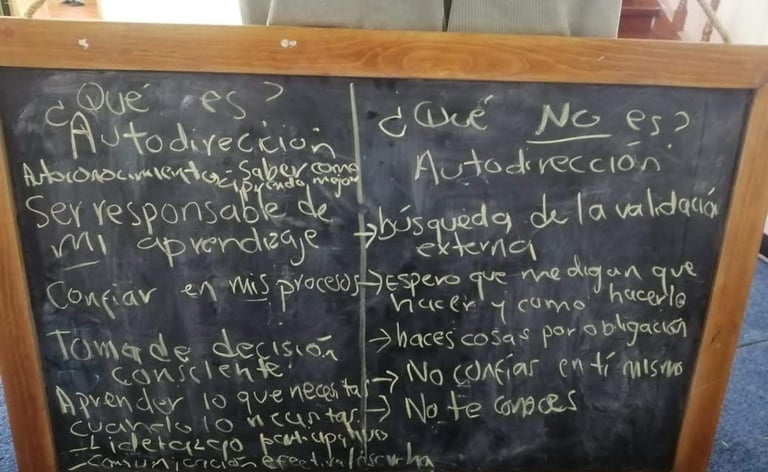 ¿Qué es?
Autodirección
Autoconocimiento - Saber como
aprendo mejor
Ser responsable de
mi aprendizaje
Confiar en mis procesos
Toma de decisión
consciente
Aprender lo que necesitas
cuando lo necesitas
- Liderazgo participativo
- Comunicación efectiva/escucha
¿Qué NO es?
Autodirección
→ búsqueda de la validación
externa
→ Espero que me digan que
hacer y como hacerlo
→ haces cosas por obligación
→ No confías en tí mismo
→ No te conoces